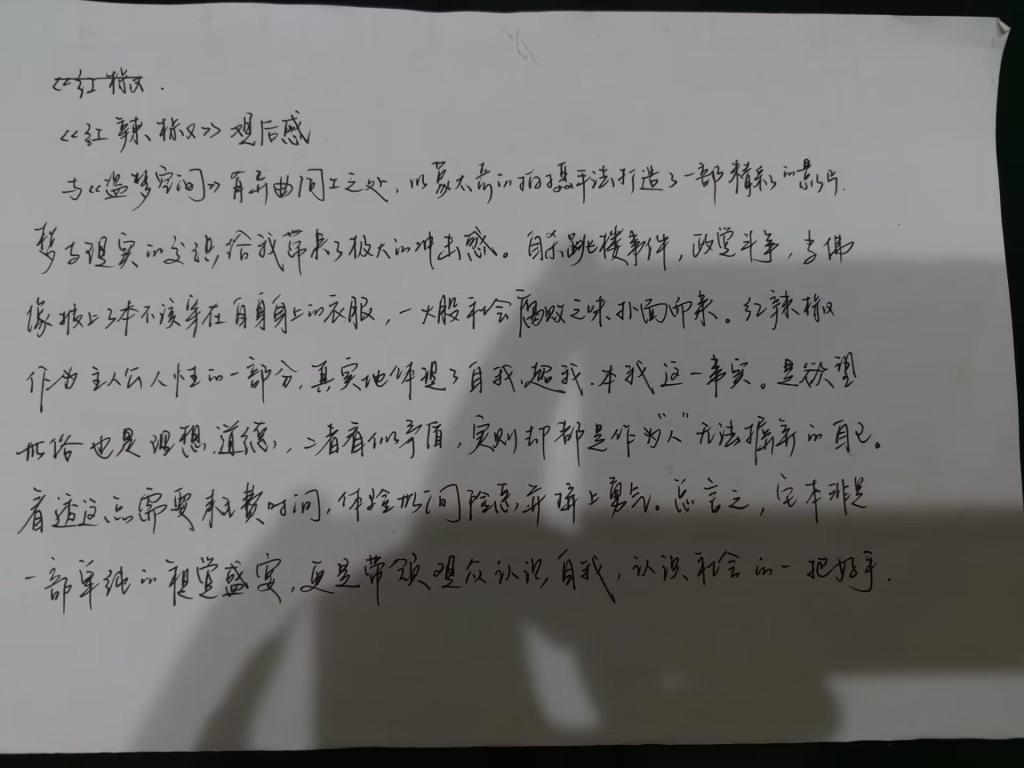 《红椒
《红辣椒》观后感
与《盗梦空间》有异曲同工之处,以蒙太奇的拍摄手法打造了一部精彩的影片.
梦与现实的交织,给我带来了极大的冲击感。自杀跳楼事件,政党斗争,与佛
像披上了本不该穿在自身身上的衣服,一大股社会腐败之味扑面而来。红辣椒
作为主人公人性的一部分,真实地体现了自我、超我、本我这一事实。是欲望
世俗也是理想、道德,二者看似矛盾,实则却都是作为"人"无法摒弃的自己。
看透这点需要耗费时间,体验世间险恶,并拼上勇气。总言之,它本非是
一部单纯的视觉盛宴,更是带领观众认识自我,认识社会的一把好手.